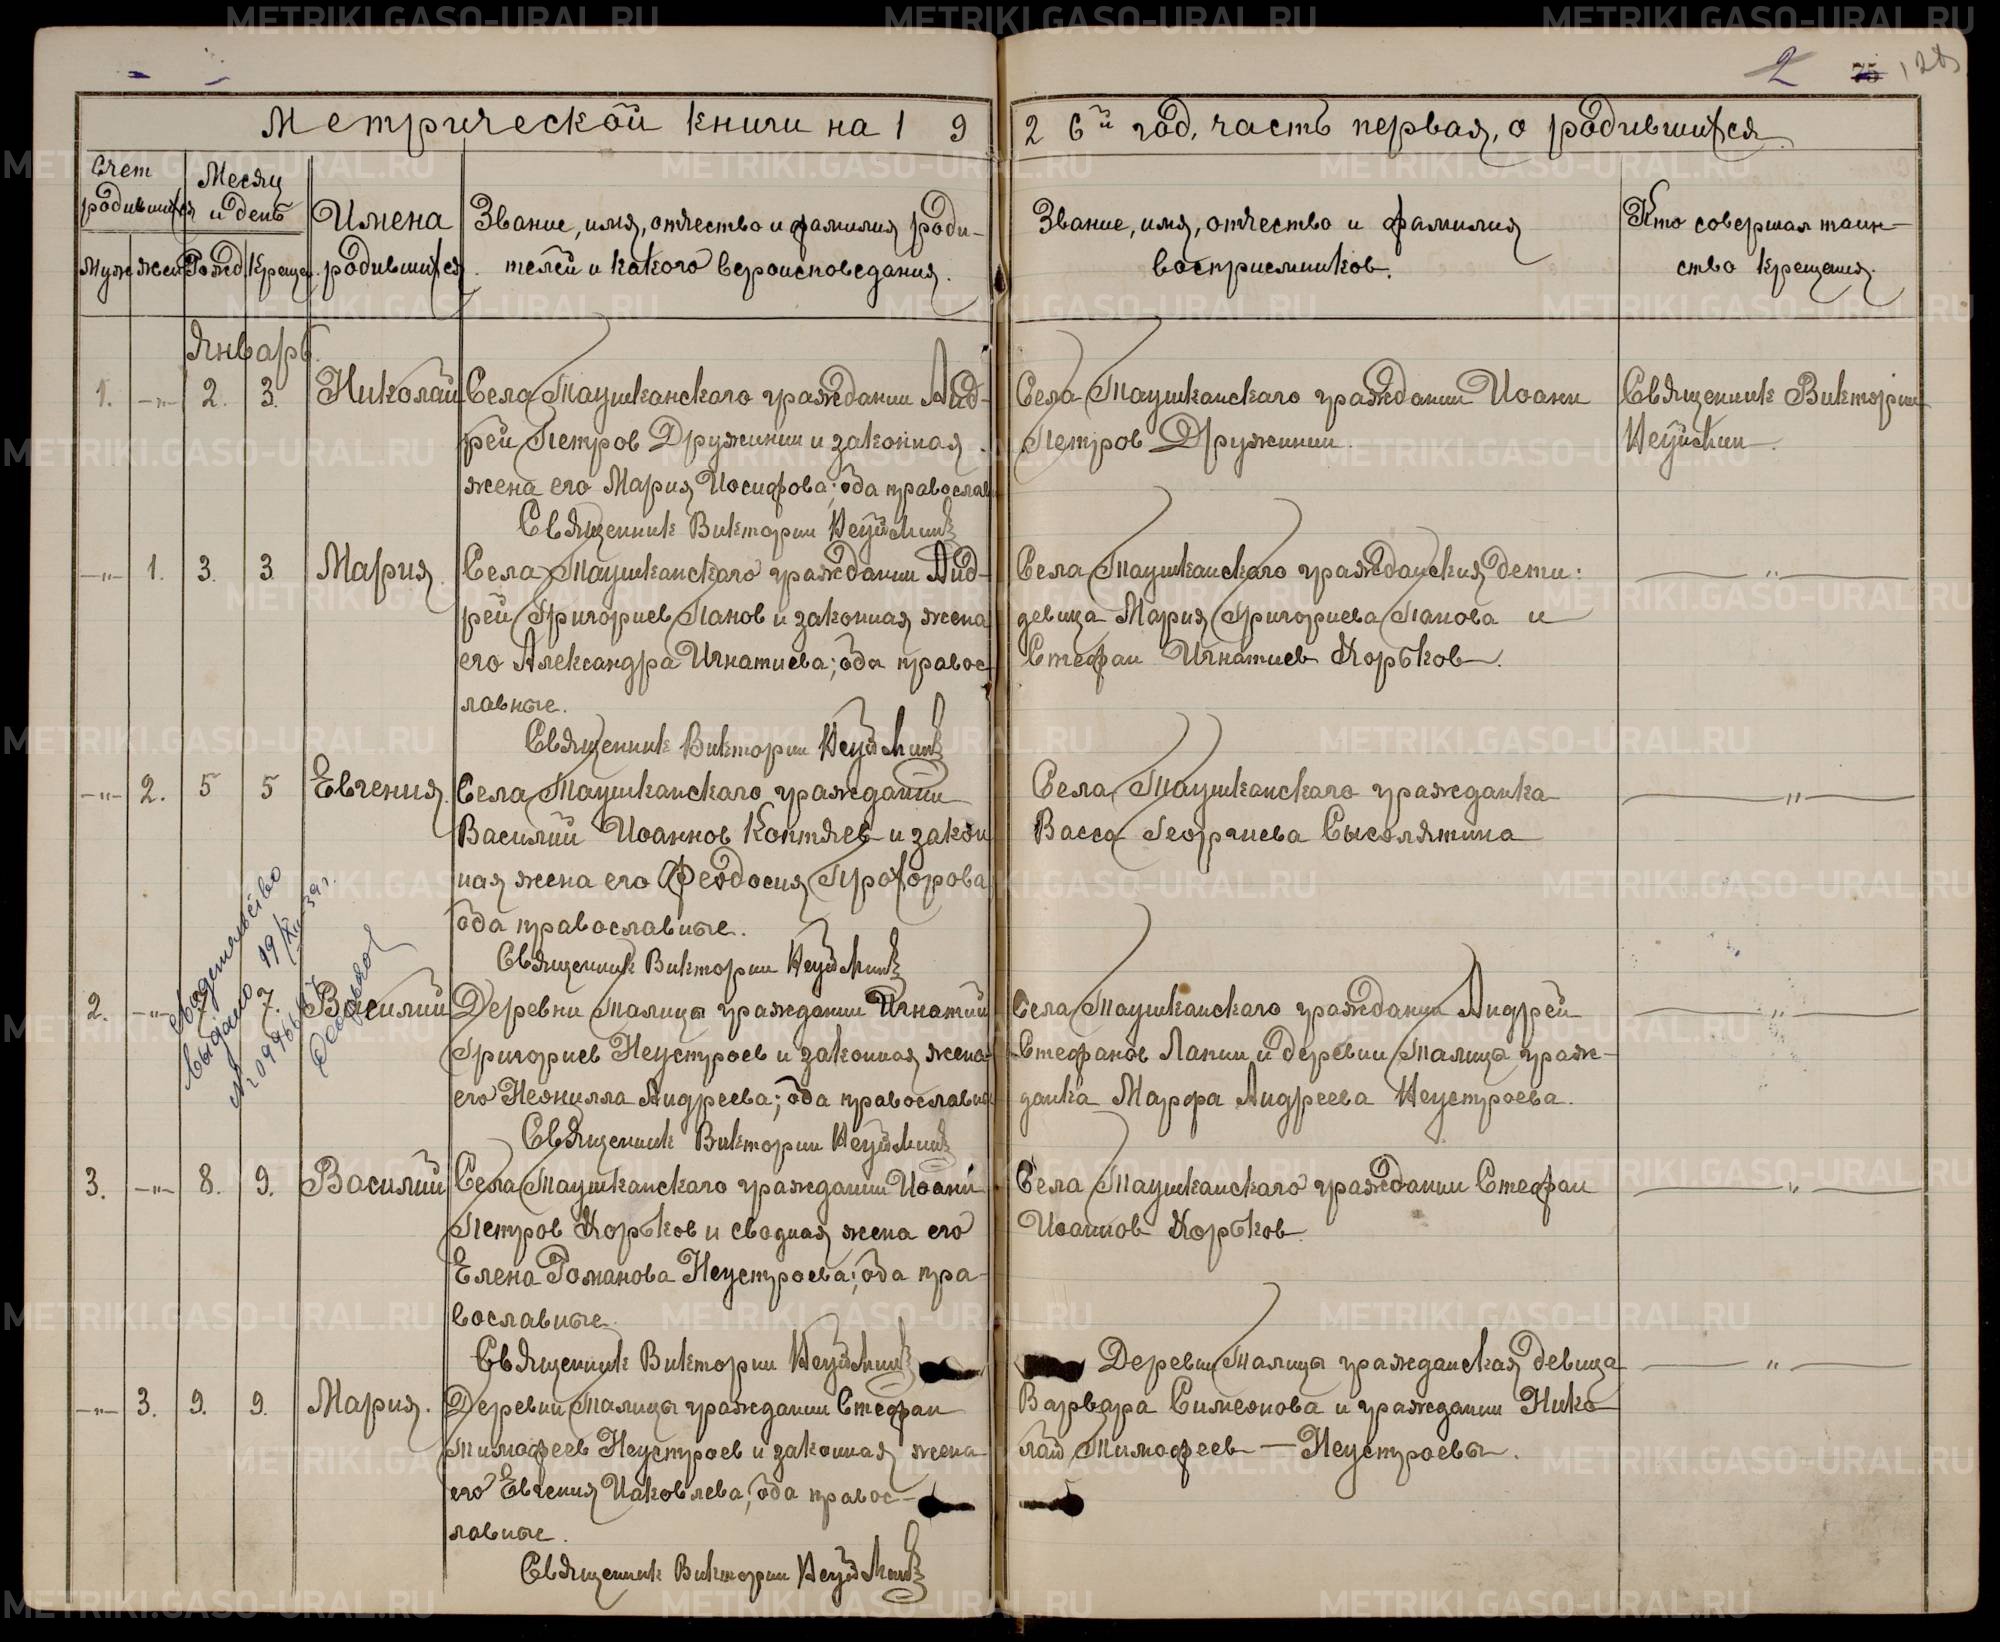 2 75 128
Метрической книги на 1 9 2 6й год, часть первая, о родившихся.
Счет родившихся
Месяц и день
Имена родившихся.
Звание, имя, отчество и фамилия роди-
телей и какого вероисповедания.
Звание, имя, отчество и фамилия
восприемников.
Кто совершал таин-
ство крещения.
Муж жен Рожд Креще.
Январь.
1. -"- 2. 3. Николай
Села Таушканскаго гражданин Анд-
рей Петров Дружинин и законная
жена его Мария Иосифова; оба православ
Священник Викторин
Села Таушканскаго гражданин Иоанн
Петров Дружинин.
Священник Викторин
-"- 1. 3. 3 Мария.
Села Таушканскаго гражданин Анд-
рей Григориев Панов и законная жена
его Александра Игнатиева; оба правос-
лавные.
Священник Викторин
Села Таушканскаго гражданския дети:
девица Мария Григориева Панова и
Стефан Игнатиев Хорьков.
— " —
-"- 2. 5 5 Евгения.
Села Таушканскаго гражданин
Василий Иоаннов Коптяев и закон
ная жена его Феодосия Прохорова
оба православные.
Священник Викторин
Села Таушканскаго гражданка
Васса Георгиева Сысолятина
— " —
свидетельство
выдано 19/XII-39г.
2. -"- 7. 7. Василий
Деревни Талицы гражданин Игнатий
Григориев Неустроев и законная жена
его Неонилла Андреева; оба православны
Священник Викторин
Села Таушканскаго гражданин Андрей
Стефанов Лапин и деревни Талицы граж-
данка Марфа Андреева Неустроева.
— " —
3. -"- 8. 9. Василий
Села Таушканскаго гражданин Иоанн
Петров Хорьков и сводная жена его
Елена Романова Неустроева; оба пра-
вославные.
Священник Викторин
Села Таушканскаго гражданин Стефан
Иоаннов Хорьков.
— " —
-"- 3. 9. 9. Мария.
Деревни Талицы гражданин Стефан
Тимофеев Неустроев и законная жена
его Евгения Иаковлева, оба правос-
лавные.
Священник Викторин
Деревни Талицы гражданская девица
Варвара Симеонова и гражданин Нико-
лай Тимофеев — Неустроевы.
— " —
METRIKI.GASO-URAL.RU